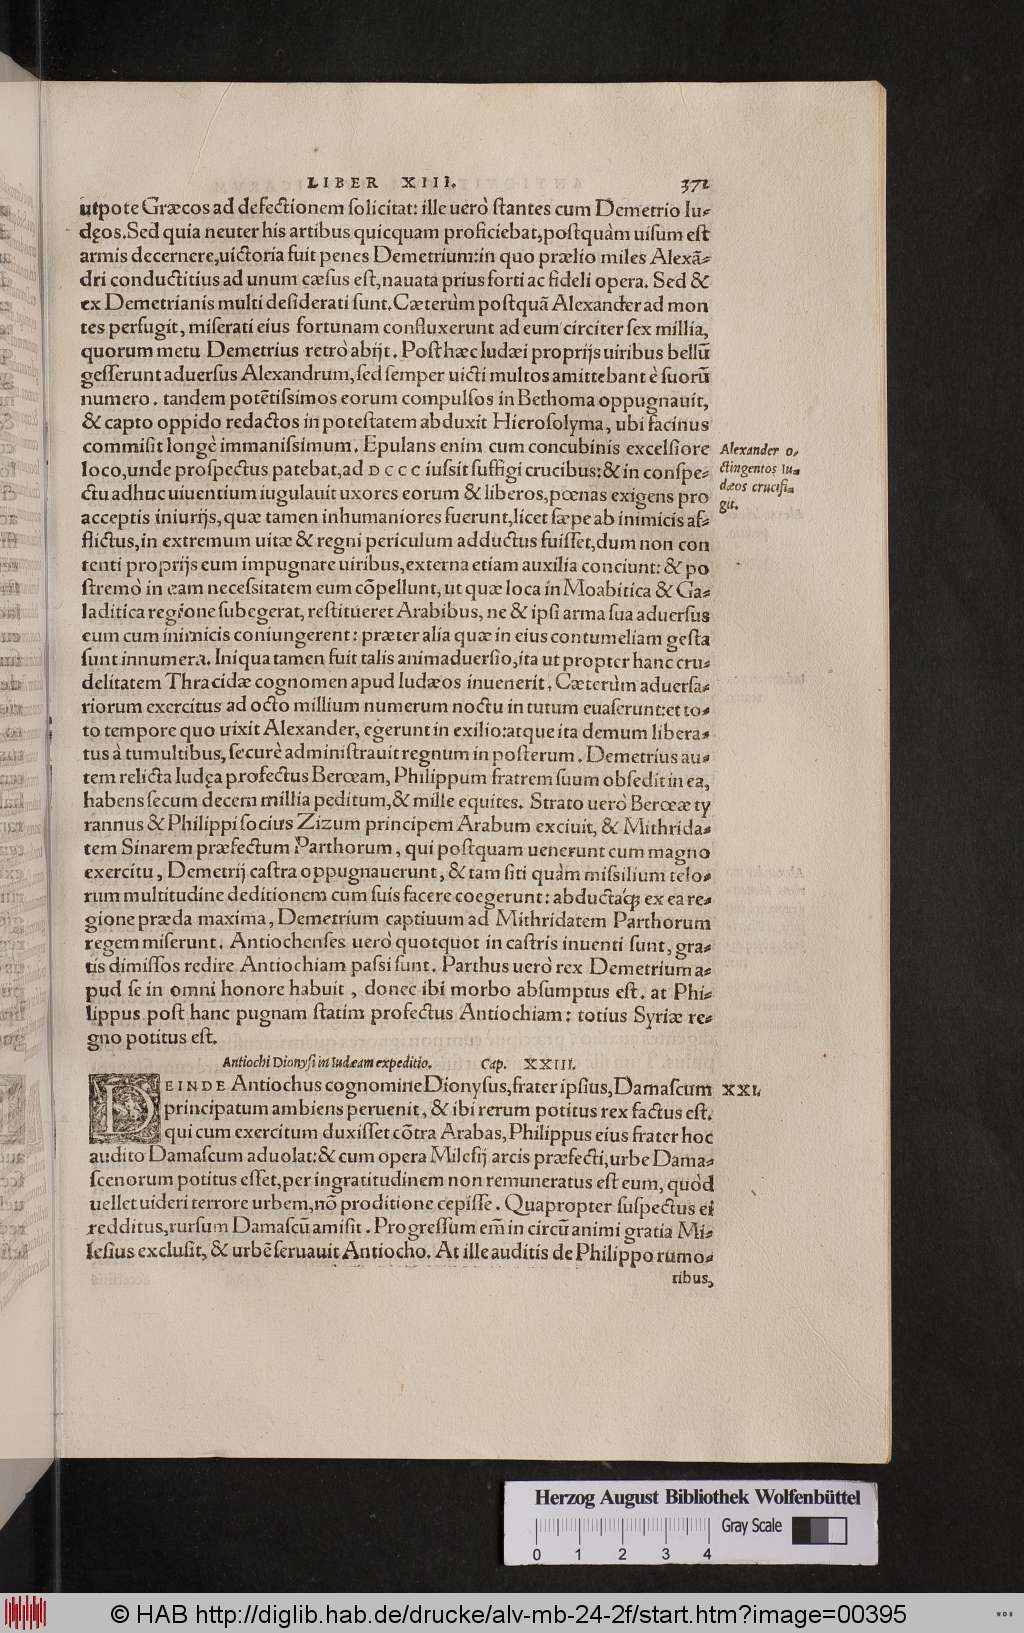 LIBER XIII. 371
utpote Græcos ad defectionem ſolicitat: ille uerò ſtantes cum Demetrio Iu⸗
dęos. Sed quia neuter his artibus quicquam proficiebat, poſtquàm uiſum eſt
armis decernere, uictoria fuit penes Demetrium: in quo prælio miles Alexã⸗
dri conductitius ad unum cæſus eſt, nauata prius forti ac fideli opera. Sed &
ex Demetrianis multi deſiderati ſunt. Cæterùm poſtquã Alexander ad mon
tes perfugit, miſerati eius fortunam confluxerunt ad eum circiter ſex millia,
quorum metu Demetrius retrò abijt. Poſt hæc Iudæi proprijs uiribus bellũ
geſſerunt aduerſus Alexandrum, ſed ſemper uicti multos amittebant è ſuorũ
numero. tandem potẽtiſsimos eorum compulſos in Bethoma oppugnauit,
& capto oppido redactos in poteſtatem abduxit Hieroſolyma, ubi facinus
commiſit longè immaniſsimum. Epulans enim cum concubinis excelſiore
loco, unde proſpectus patebat, ad DCCC iuſsit ſuffigi crucibus: & in conſpe⸗
ctu adhuc uiuentium iugulauit uxores eorum & liberos, pœnas exigens pro
acceptis iniurijs, quæ tamen inhumaniores fuerunt, licet ſæpe ab inimicis af⸗
flictus, in extremum uitæ & regni periculum adductus fuiſſet, dum non con
tenti proprijs eum impugnare uiribus, externa etiam auxilia conciunt: & po
ſtremò in eam neceſsitatem eum cõpellunt, ut quæ loca in Moabitica & Ga⸗
laditica regione ſubegerat, reſtitueret Arabibus, ne & ipſi arma ſua aduerſus
eum cum inimicis coniungerent: præter alia quæ in eius contumeliam geſta
ſunt innumera. Iniqua tamen fuit talis animaduerſio, ita ut propter hanc cru⸗
delitatem Thracidæ cognomen apud Iudæos inuenerit. Cæterùm aduerſa⸗
riorum exercitus ad octo millium numerum noctu in tutum euaſerunt: et to⸗
to tempore quo uixit Alexander, egerunt in exilio: atque ita demum libera⸗
tus à tumultibus, ſecurè adminiſtrauit regnum in poſterum. Demetrius au⸗
tem relicta Iudęa profectus Berœam, Philippum fratrem ſuum obſedit in ea,
habens ſecum decem millia peditum, & mille equites. Strato uerò Berœæ ty
rannus & Philippi ſocius Zizum principem Arabum exciuit, & Mithrida⸗
tem Sinarem præfectum Parthorum, qui poſtquam uenerunt cum magno
exercitu, Demetrij caſtra oppugnauerunt, & tam ſiti quàm miſsilium telo⸗
rum multitudine deditionem cum ſuis facere coegerunt: abductaq́ꝫ ex ea re⸗
gione præda maxima, Demetrium captiuum ad Mithridatem Parthorum
regem miſerunt. Antiochenſes uerò quotquot in caſtris inuenti ſunt, gra⸗
tis dimiſſos redire Antiochiam paſsi ſunt. Parthus uerò rex Demetrium a⸗
pud ſe in omni honore habuit, donec ibi morbo abſumptus eſt. at Phi⸗
lippus poſt hanc pugnam ſtatim profectus Antiochiam: totius Syriæ re⸗
gno potitus eſt.
Alexander o⸗
ctingentos Iu⸗
dæos crucifi⸗
git.
Antiochi Dionyſi in Iudæam expeditio. Cap. XXIII.
DEINDE Antiochus cognomine Dionyſus, frater ipſius, Damaſcum XXI.
principatum ambiens peruenit, & ibi rerum potitus rex factus eſt.
qui cum exercitum duxiſſet cõtra Arabas, Philippus eius frater hoc
audito Damaſcum aduolat: & cum opera Mileſij arcis præfecti, urbe Dama⸗
ſcenorum potitus eſſet, per ingratitudinem non remuneratus eſt eum, quòd
uellet uideri terrore urbem, nõ proditione cepiſſe. Quapropter ſuſpectus ei
redditus, rurſum Damaſcũ amiſit. Progreſſum em̃ in circũ animi gratia Mi⸗
leſius excluſit, & urbẽ ſeruauit Antiocho. At ille auditis de Philippo rumo⸗
ribus,
Herzog August Bibliothek Wolfenbüttel
Gray Scale
0 1 2 3 4
© HAB http://diglib.hab.de/drucke/alv-mb-24-2f/start.htm?image=00395